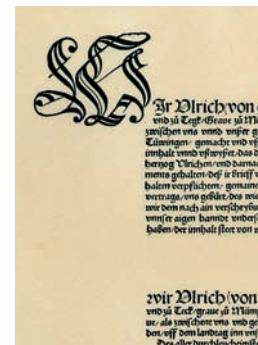 WIr Vlrich von
vnd zů Tegk/Graue zů Mü
zwischen vns vnnd vnser g
Tüwingen/ gemacht vnd vff
innhalt vnnd vßwyset/das d
hertzog Vlrichen/vnd darnac
ments gehalten/deß ir brieff v
halten verpflichten/ gemaine
vertrags/vns gebürt/des wie
wir dem nach ain verschrybu
vnnser aigen hanndt vnders
haben/der innhalt stet von w
wir Vlrich von
vnd zů Teck/graue zů Mümp
ue/als zwischent vns vnd ge
den/vff dem landtag inn vns
Des aller durchleuchtigist